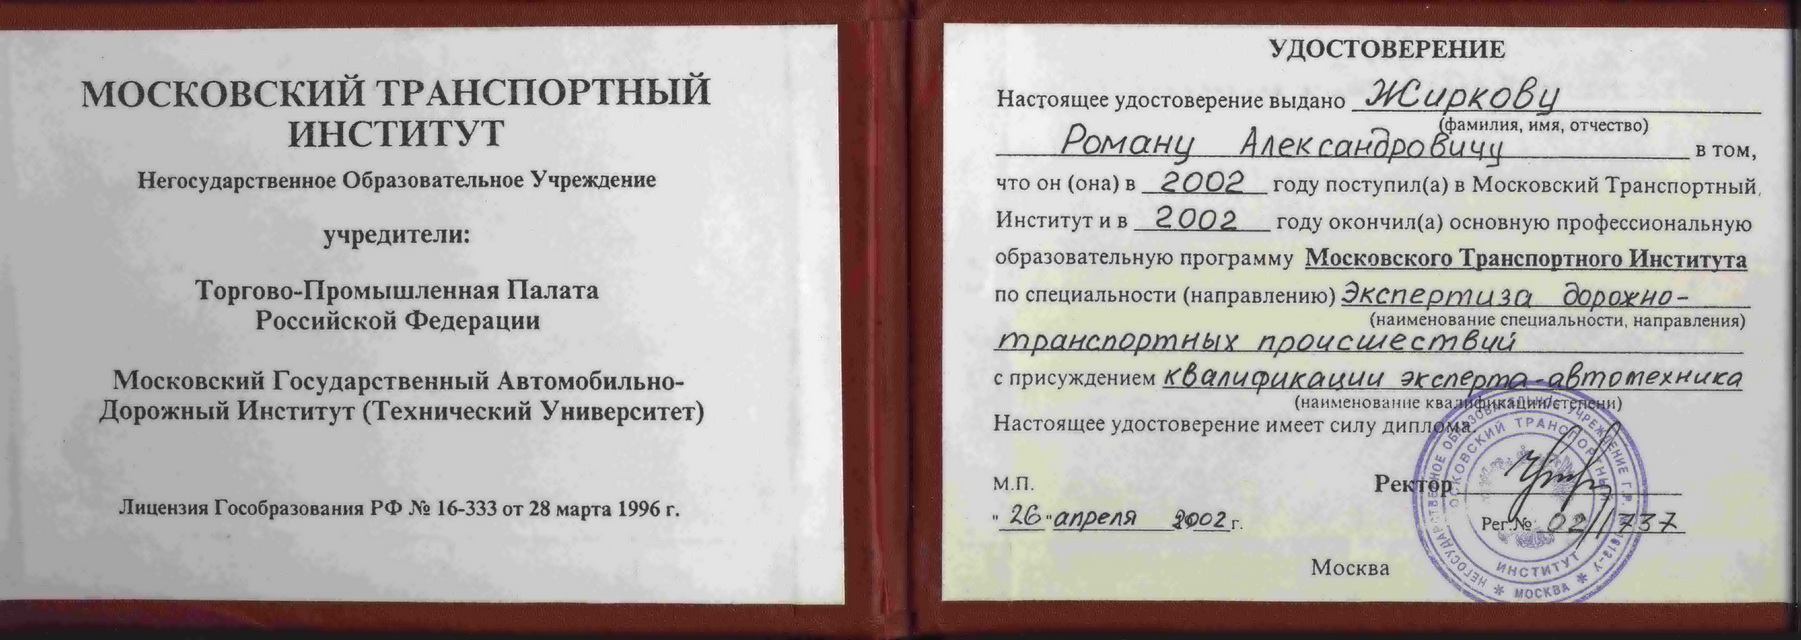 МОСКОВСКИЙ ТРАНСПОРТНЫЙ
ИНСТИТУТ
Негосударственное Образовательное Учреждение
учредители:
Торгово-Промышленная Палата
Российской Федерации
Московский Государственный Автомобильно-
Дорожный Институт (Технический Университет)
Лицензия Гособразования РФ № 16-333 от 28 марта 1996 г.
УДОСТОВЕРЕНИЕ
Настоящее удостоверение выдано Жиркову
(фамилия, имя, отчество)
Роману Александровичу в том,
что он (она) в 2002 году поступил(а) в Московский Транспортный
Институт и в 2002 году окончил(а) основную профессиональную
образовательную программу Московского Транспортного Института
по специальности (направлению) Экспертиза дорожно-
(наименование специальности, направления)
транспортных происшествий
с присуждением квалификации эксперта-автотехника
(наименование квалификации/степени)
Настоящее удостоверение имеет силу диплома.
М.П.
Ректор
"26" апреля 2002 г.
Рег.№ 02/1737
Москва
НЕГОСУДАРСТВЕННОЕ ОБРАЗОВАТЕЛЬНОЕ УЧРЕЖДЕНИЕ
МОСКОВСКИЙ ТРАНСПОРТНЫЙ
ИНСТИТУТ
МОСКВА